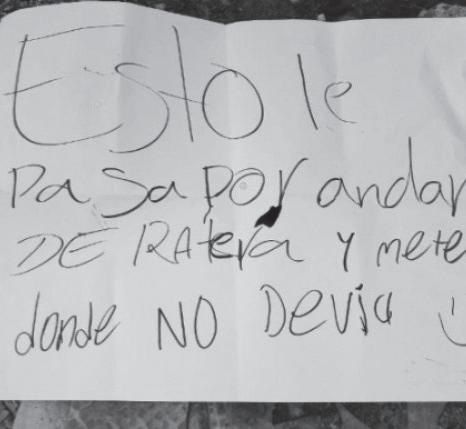 Esto le
Pasa por andar
DE RAtera y mete
donde NO Devia